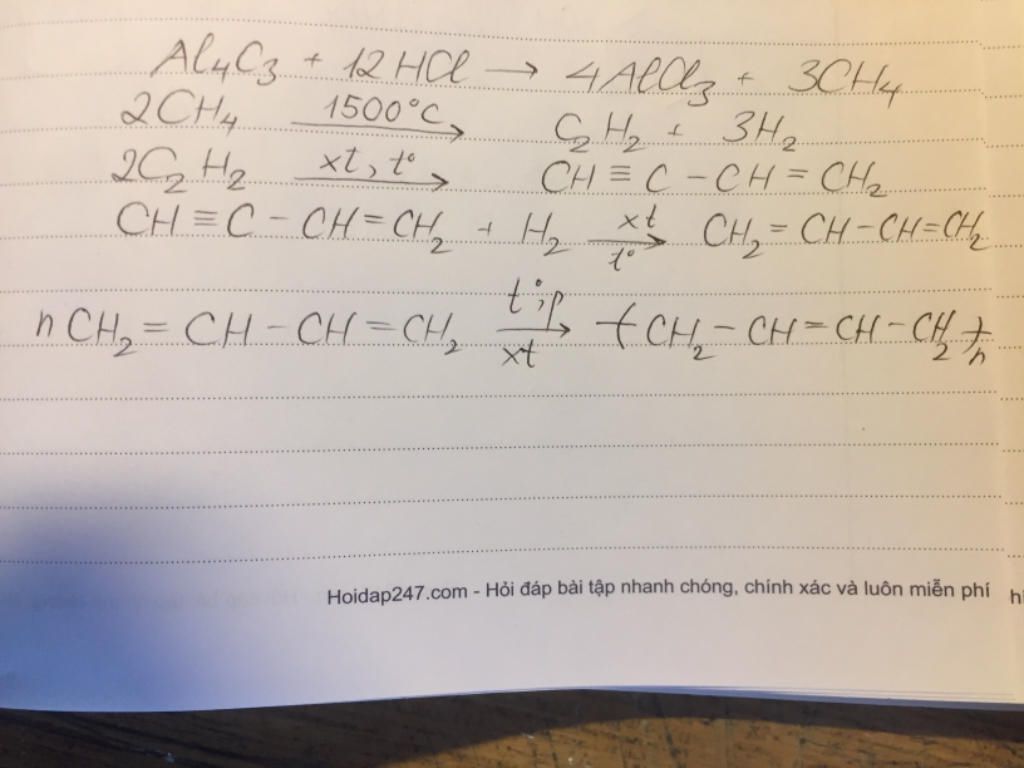 Al₄C₃ + 12HCl → 4AlCl₃ + 3CH₄
2CH₄ 1500°C → C₂H₂ + 3H₂
2C₂H₂ xt, t° → CH ≡ C - CH = CH₂
CH ≡ C - CH = CH₂ + H₂ xt → t° CH₂ = CH - CH = CH₂
nCH₂ = CH - CH = CH₂ t°, p → xt (CH₂ - CH = CH - CH₂)ₙ
Hoidap247.com - Hỏi đáp bài tập nhanh chóng, chính xác và luôn miễn phí